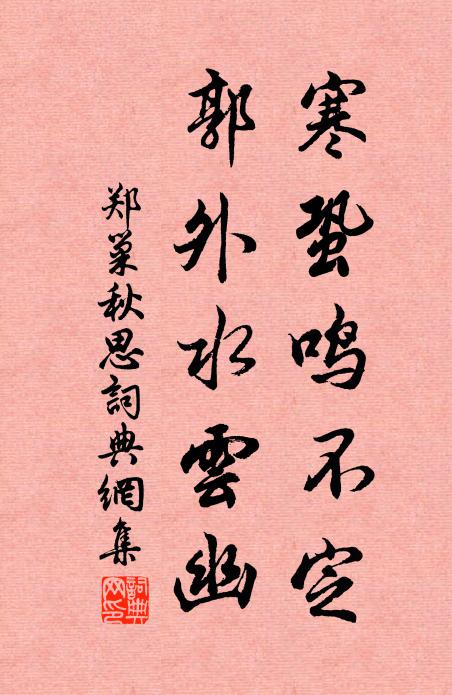 寒蛩鸣不定
郭外水雲幽
郑巢秋思詞典網集
詞典
网印